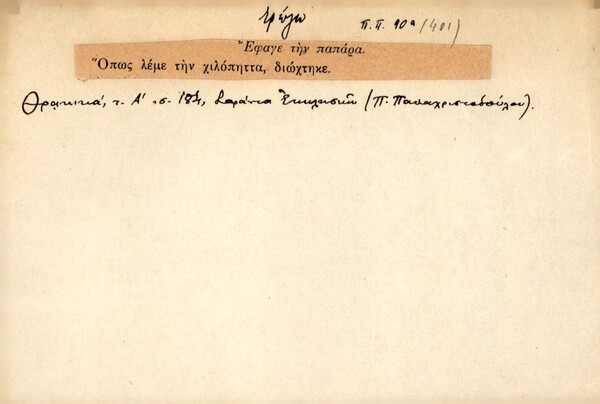 τρώγω
π.π. 10α (401)
Ἔφαγε τὴν παπάρα.
Ὅπως λέμε τὴν χιλόπηττα, διώχτηκε.
Θρακικά, τ. Α' σ. 184, Σαράντα Ἐκκλησιῶν (Π. Παπαχριστοδούλου).